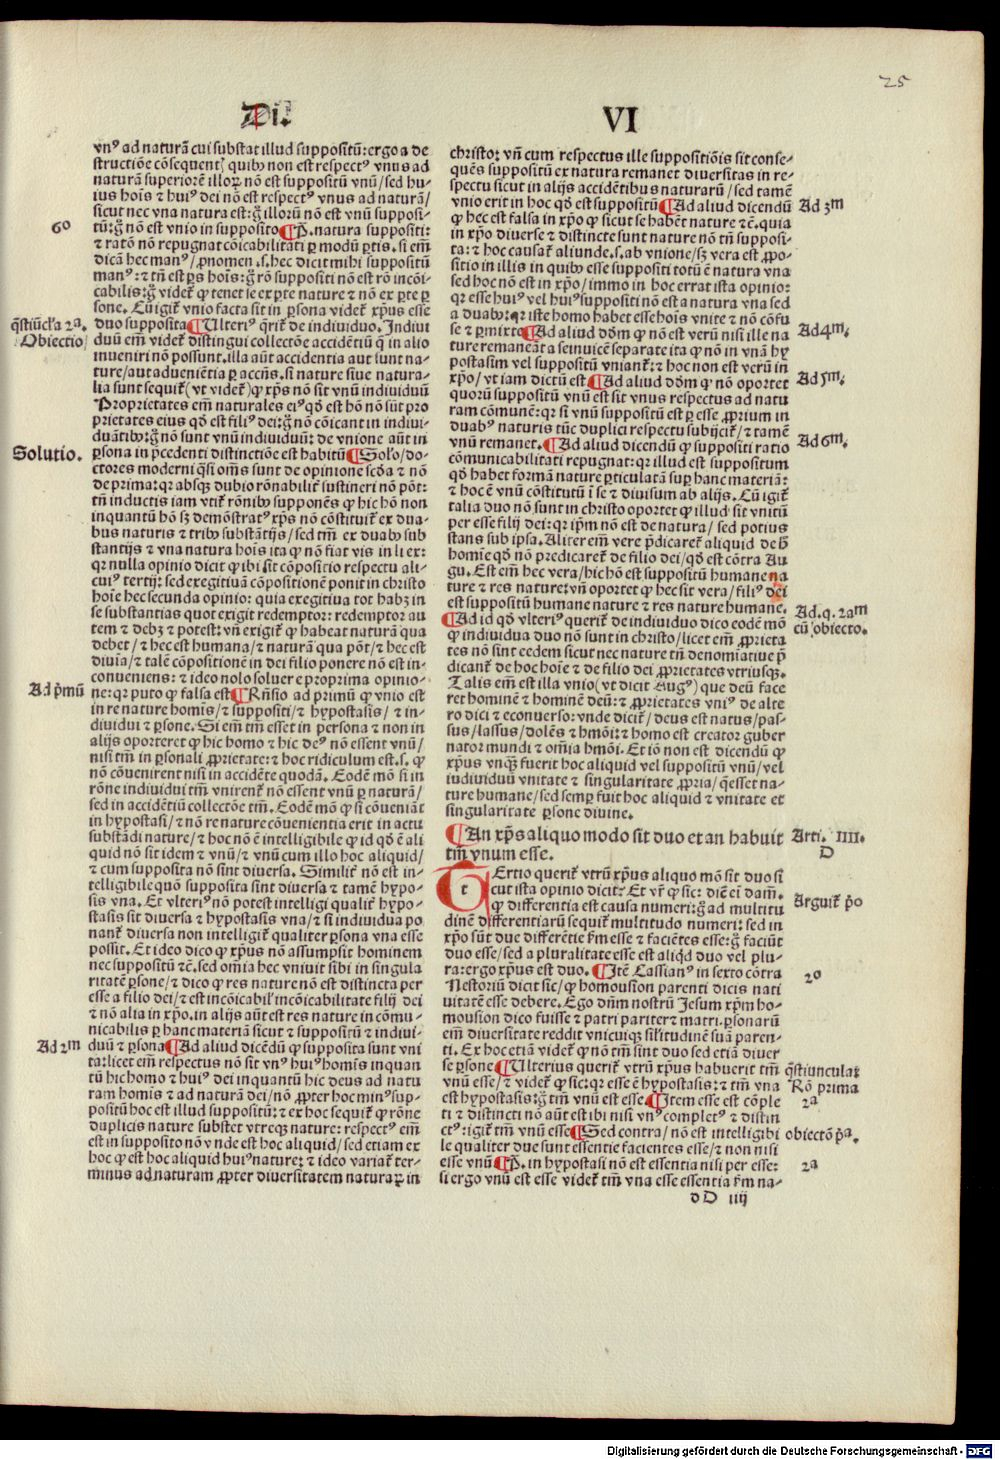 25
Di. VI
vnꝰ ad naturā cui substat illud suppositū: ergo a de
structiōe cōsequentꝭ quibꝰ non est respectꝰ vnus ad
naturā superiorē illoꝝ nō est suppositū vnū/sed hu-
ius hoīs ⁊ huiꝰ dei nō est respectꝰ vnus ad naturā/
sicut nec vna natura est: gͦ illorū nō est vnū supposi-
tū: gͦ nō est vnio in supposito ¶ P. natura suppositi:
⁊ ratōn nō repugnat cōicabilitati ꝑ modū ꝑtis. si em̄
dicā hec manꝰ/ꝓnomen .s. hec dicit mihi suppositū
manꝰ: ⁊ tn̄ est ꝑs hoīs: gͦ rō suppositi nō est rō incōi-
cabilis: gͦ videt̄ ꝙ tenet se ex ꝑte nature ⁊ nō ex ꝑte ꝑ
sone. Cū igit̄ vnio facta sit in ꝑsona videt̄ xp̄us esse
duo supposita ¶ Ulteriꝰ q̄rit̄ de indiuiduo. Indiui
duū em̄ videt̄ distingui collectōe accidētiū q̄ in alio
inueniri nō possunt. illa aūt accidentia aut sunt na-
ture/aut aduenientia ꝑ accn̄s. si nature siue natura-
lia sunt sequit̄ (vt videt̄) ꝙ xp̄s nō sit vnū indiuiduū
Proprietates em̄ naturales eiꝰ qd̄ est hō nō sūt pro
prietates eius qd̄ est filiꝰ dei: gͦ nō cōicant in indiui-
duātibꝰ: gͦ nō sunt vnū indiuiduū: de vnione aūt in
ꝑsona in p̄cedenti distinctiōe est habitū ¶ Solꝰo/do-
ctores moderni q̄si om̄s sunt de opinione sc̄da ⁊ nō
de prima: qr absqꝫ dubio rōnabilit̄ sustineri nō pōt:
tn̄ inductis iam vtit̄ rōnibꝰ supponēs ꝙ hic hō non
inquantū hō sꝫ demōstratꝰ xp̄s nō cōstituit̄ ex dua-
bus naturis ⁊ tribꝰ substātijs/sed tm̄ ex duabꝰ sub
stantijs ⁊ vna natura hoīs ita ꝙ nō fiat vis in li ex:
qr nulla opinio dicit ꝙ ibi sit cōpositio respectu ali-
cuiꝰ tertij: sed exegitiuā cōpositionē ponit in christo
hoīe hec secunda opinio: quia exegitiua tot habꝫ in
se substantias quot exigit redemptor: redemptor au
tem ⁊ debꝫ ⁊ potest: vn̄ exigit̄ ꝙ habeat naturā qua
debet/⁊ hec est humana/⁊ naturā qua pōt/⁊ hec est
diuīa/⁊ talē cōpositionē in dei filio ponere nō est in-
conueniens: ⁊ ideo nolo soluere ꝓ proprima opinio-
ne: qr puto ꝙ falsa est ¶ Rn̄sio ad primū ꝙ vnio est
in re nature homīs/⁊ suppositi/⁊ hypostasis/⁊ in-
diuidui ⁊ ꝑsone. Si em̄ tm̄ esset in persona ⁊ non in
alijs oporteret ꝙ hic homo ⁊ hic deꝰ nō essent vnū/
nisi tm̄ in ꝑsonali ꝓprietate: ⁊ hoc ridiculum est .s. ꝙ
nō cōuenirent nisi in accidēte quodā. Eodē mō si in
rōne indiuidui tm̄ vnirent̄ nō essent vnū ꝑ naturā/
sed in accidētiū collectōe tm̄. Eodē mō ꝙ si cōueniāt
in hypostasi/⁊ nō re nature cōuenientia erit in actu
substādi nature/⁊ hoc nō ē intelligibile ꝙ id qd̄ ē ali
quid nō sit idem ⁊ vnū/⁊ vnū cum illo hoc aliquid/
⁊ cum supposita nō sint diuersa. Similit̄ nō est in-
telligibile quō supposita sint diuersa ⁊ tamē hypo-
sis vna. Et vlteriꝰ nō potest intelligi qualit̄ hypo-
stasis sit diuersa ⁊ hypostasis vna/⁊ si indiuidua po
nant̄ diuersa non intelligit̄ qualiter ꝑsona vna esse
possit. Et ideo dico ꝙ xp̄us nō assumpsit hominem
nec suppositū ⁊c̄. sed om̄ia hec vniuit sibi in singula
ritatē ꝑsone/⁊ dico ꝙ res nature nō est distincta per
esse a filio dei/⁊ est incōicabil' incōicabilitate filij dei
⁊ nō alia in xp̄o. in alijs aūt est res nature incōmu-
nicabilis ꝑ hanc materiā sicut ⁊ suppositū ⁊ indiui-
duū ⁊ ꝑsona ¶ Ad aliud dicēdū ꝙ supposita sunt vni
ta: licet em̄ respectus nō sit vnꝰ huiꝰ homīs inquan
tū hic homo ⁊ huiꝰ dei inquantū hic deus ad natu
ram homīs ⁊ ad naturā dei/nō ꝓpter hoc minꝰ sup-
positū hoc est illud suppositū: ⁊ ex hoc sequit̄ ꝙ rōne
duplicis nature substet vtreqꝫ nature: respectꝰ em̄
est in supposito nō vnde est hoc aliquid/sed etiam ex
hoc ꝙ est hoc aliquid huiꝰ nature: ⁊ ideo variat̄ ter-
minus ad naturam ꝓpter diuersitatem naturaꝝ in
6º
q̄stiūcl'a 2ª.
Obiectio
Solutio.
Ad p̄mū
Ad 2ᵐ
christo: vn̄ cum respectus ille suppositiōis sit conse-
quēs suppositū ex natura remanet diuersitas in re-
spectu sicut in alijs accidētibus naturarū/sed tamē
vnio erit in hoc qd̄ est suppositū ¶ Ad aliud dicendū
ꝙ hec est falsa in xp̄o ꝙ sicut se habēt nature ⁊c̄. quia
in xp̄o diuerse ⁊ distincte sunt nature nō tn̄ supposi-
ta: ⁊ hoc causat̄ aliunde .s. ab vnione/sꝫ vera est ꝓpo-
sitio in illis in quibꝰ esse suppositi totū ē natura vna
sed hoc nō est in xp̄o/immo in hoc errat ista opinio:
qr esse huiꝰ vel huiꝰ suppositi nō est a natura vna sed
a duabꝰ: qr iste homo habet esse hoīs vnite ⁊ nō cōfu
se ⁊ ꝑmixte ¶ Ad aliud dd̄m ꝙ nō est verū nisi ille na
ture remaneāt a seinuicē separate ita ꝙ nō in vnā hy
postasim vel suppositū vniant̄: ⁊ hoc non est verū in
xp̄o/vt iam dictū est ¶ Ad aliud dd̄m ꝙ nō oportet
quorū suppositū vnū est sit vnus respectus ad natu
ram cōmunē: qr si vnū suppositū est ꝑ esse ꝓprium in
duabꝰ naturis tūc duplici respectu subijcit̄/⁊ tamē
vnū remanet. ¶ Ad aliud dicendū ꝙ suppositi ratio
cōmunicabilitati repugnat: qr illud est suppositum
qd̄ habet formā nature ꝑticulatā suꝑ hanc materiā:
⁊ hoc ē vnū cōstitutū ī se ⁊ diuisum ab alijs. Cū igit̄
talia duo nō sunt in christo oportet ꝙ illud sit vnitū
per esse filij dei: qr ip̄m nō est de natura/sed potius
stans sub ipsa. Aliter em̄ vere p̄dicaret̄ aliquid de h̄
homīe qd̄ nō predicaret̄ de filio dei/qd̄ est cōtra Au
gu. Est em̄ hec vera/hic hō est suppositū humane na
ture ⁊ res nature: vn̄ oportet ꝙ hec sit vera/filiꝰ dei
est suppositū humane nature ⁊ res nature humane.
¶ Ad id qd̄ vlteriꝰ querit̄ de indiuiduo dico eodē mō
ꝙ indiuidua duo nō sunt in christo/licet em̄ ꝓprieta
tes nō sint eedem sicut nec nature tn̄ denomīatiue p̄
dicant̄ de hoc hoīe ⁊ de filio dei ꝓprietates vtriusqꝫ.
Talis em̄ est illa vnio (vt dicit Augꝰ) que deū face
ret hominē ⁊ hominē deū: ⁊ ꝓprietates vniꝰ de alte
ro dici ⁊ econuerso: vnde dicit̄/deus est natus/pas-
sus/lassus/dolēs ⁊ hmōi: ⁊ homo est creator guber
nator mundi ⁊ om̄ia hmōi. Et iō non est dicendū ꝙ
xp̄us vnqꝫ fuerit hoc aliquid vel suppositū vnū/vel
iudiuiduū vnitate ⁊ singularitate ꝓpria/q̄ esset na-
ture humane/sed semꝑ fuit hoc aliquid ⁊ vnitate et
singularitate ꝑsone diuine.
¶ An xp̄s aliquo modo sit duo et an habuit
tm̄ vnum esse.
Tertio querit̄ vtrū xp̄us aliquo mō sit duo si
cut ista opinio dicit: Et vr̄ ꝙ sic: dic̄ eī dam̄.
ꝙ differentia est causa numeri: gͦ ad multitu
dinē differentiarū sequit̄ multitudo numeri: sed in
xp̄o sūt due differētie f̄m esse ⁊ faciētes esse: gͦ faciūt
duo esse/sed a pluralitate esse est aliqd duo vel plu-
ra: ergo xp̄us est duo. ¶ Itē Cassianꝰ in sexto cōtra
Nestoriū dicit sic/ꝙ homousion parenti dicis nati
uitatē esse debere. Ego dn̄m nostrū Jesum xp̄m ho-
mousion dico fuisse ⁊ patri pariter ⁊ matri. ꝑsonarū
em̄ diuersitate reddit vnicuiqꝫ sil'itudinē suā paren-
ti. Ex hoc etiā videt̄ ꝙ nō tm̄ sint duo sed etiā diuer
se ꝑsone ¶ Ulterius querit̄ vtrū xp̄us habuerit tm̄
vnū esse/⁊ videt̄ ꝙ sic: qr esse ē hypostasis: ⁊ tm̄ vna
est hypostasis: gͦ tm̄ vnū est esse. ¶ Item esse est cōple
ti ⁊ distincti nō aūt est ibi nisi vnꝰ completꝰ ⁊ distin
ctꝰ: igit̄ tm̄ vnū esse ¶ Sed contra/nō est intelligibi
le qualiter due sunt essentie facientes esse/⁊ non nisi
esse vnū ¶ P. in hypostasi nō est essentia nisi per esse:
si ergo vnū est esse videt̄ tm̄ vna esse essentia f̄m na-
d D iiij
Ad 3ᵐ
Ad 4ᵐ.
Ad 5ᵐ.
Ad 6ᵐ.
Ad. q. 2aᵐ
cū obiecto.
Arti. IIII.
D
Arguit̄ p̄o
2º
q̄stiunculaꝫ
Rō prima
2ª
obiectō pª.
2ª
Digitalisierung gefördert durch die Deutsche Forschungsgemeinschaft - DFG